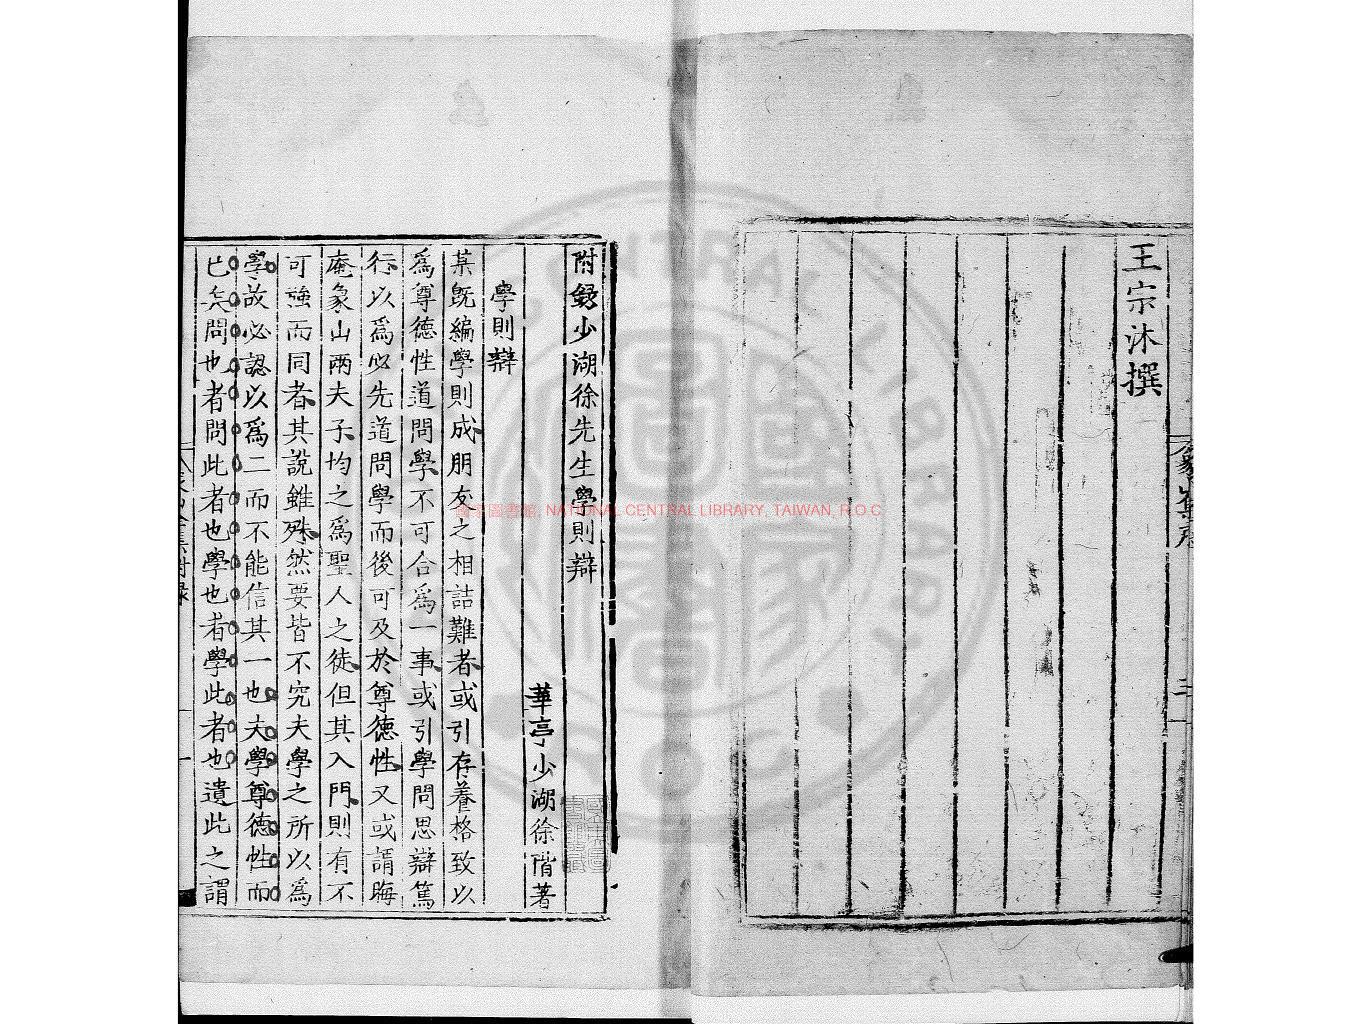 王宗沐撰
附録少湖徐先生學則辯
華亭少湖徐階著
學則辯
某既編學則成朋友之相詰難者或引存養格致以
爲尊德性道問學不可合爲一事或引學問思辯篤
行以爲必先道問學而後可及於尊德性又或謂晦
庵象山兩夫子均之爲聖人之徒但其入門則有不
可強而同者其說雖殊然要皆不究夫學之所以爲
學故必認以爲二而不能信其一也夫學尊德性而
已矣問也者問此者也學也者學此者也遺此之謂
國家圖書館, NATIONAL CENTRAL LIBRARY, TAIWAN, R.O.C